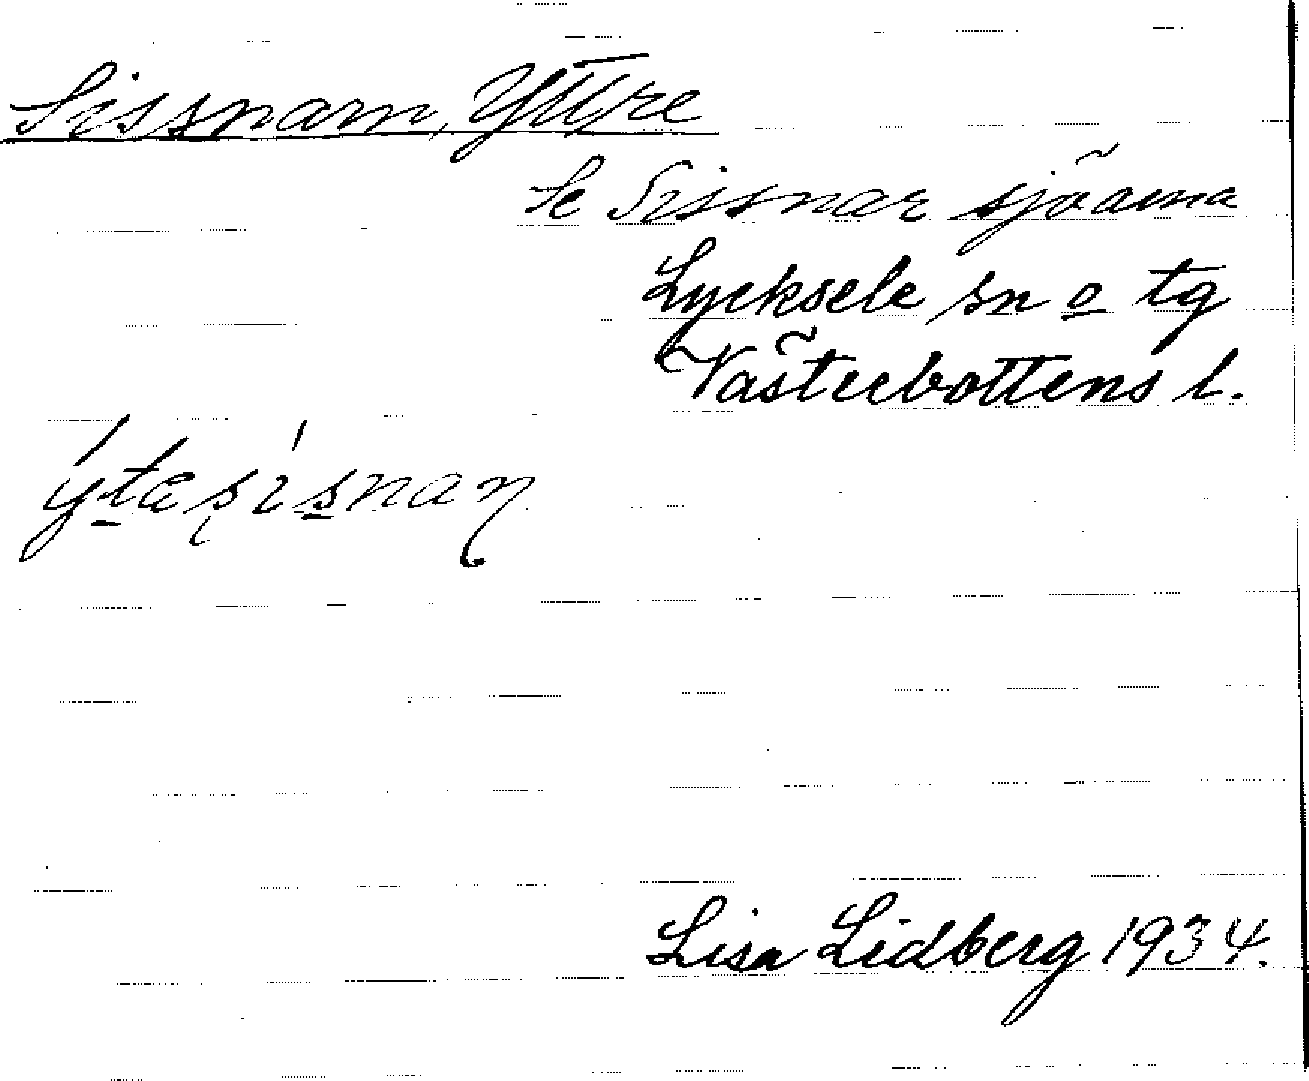 Sissnarn, Yttre
Se Sissnar sjöarna
Lycksele sn o tg
Västerbottens l.
Lisa Lidberg 1934.